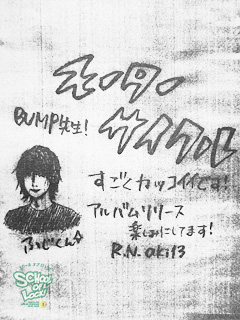 モーターサイクル
BUMP先生！
すごくカッコイイです！
アルバムリリース
楽しみにしてます！
R.N. oki13
ふじくん
SCHOOL
OF
LOCK!